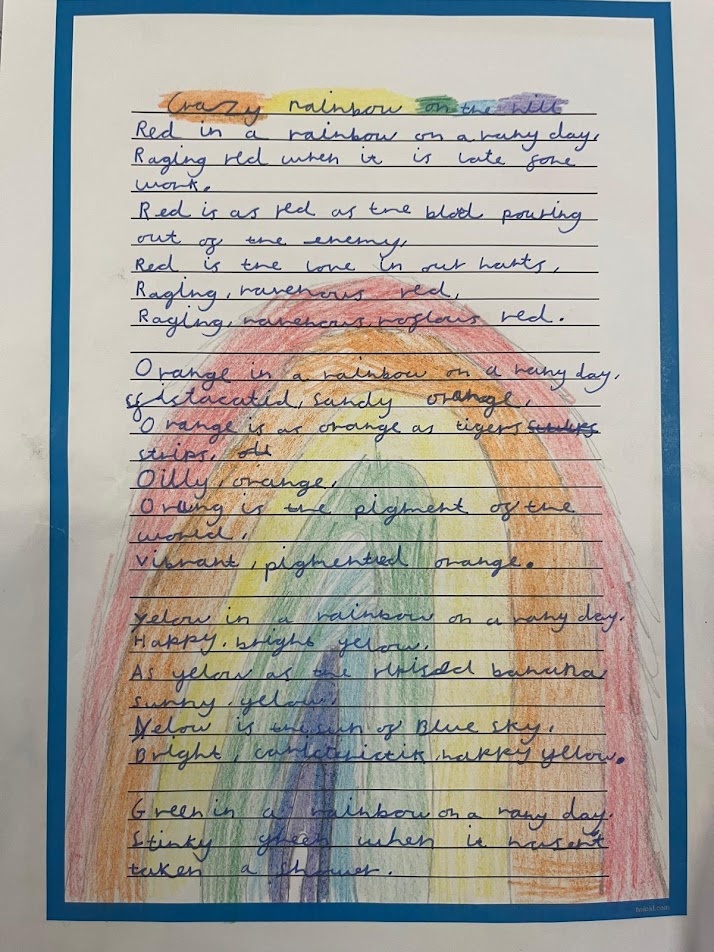 Crazy rainbow on the hill
Red in a rainbow on a rany day,
Raging red when it is late fone
work.
Red is as red as the blod pouring
out of the enemy,
Red is the love in our harts,
Raging, ravenous red,
Raging, ravenous, red.
Orange in a rainbow on a rany day,
sandy orange,
Orange is as orange as tigers
strips,
Oilly, orange,
Orang is the pigment of the
world,
vibrant, pigmented orange.
yelow in a rainbow on a rany day.
Happy, bright yelow,
As yelow as the banana
sunny yelow,
Yelow is the sun of Blue sky,
Bright, happy yellow.
Green in a rainbow on a rany day.
Stinky green when it hasent
taken a shower.